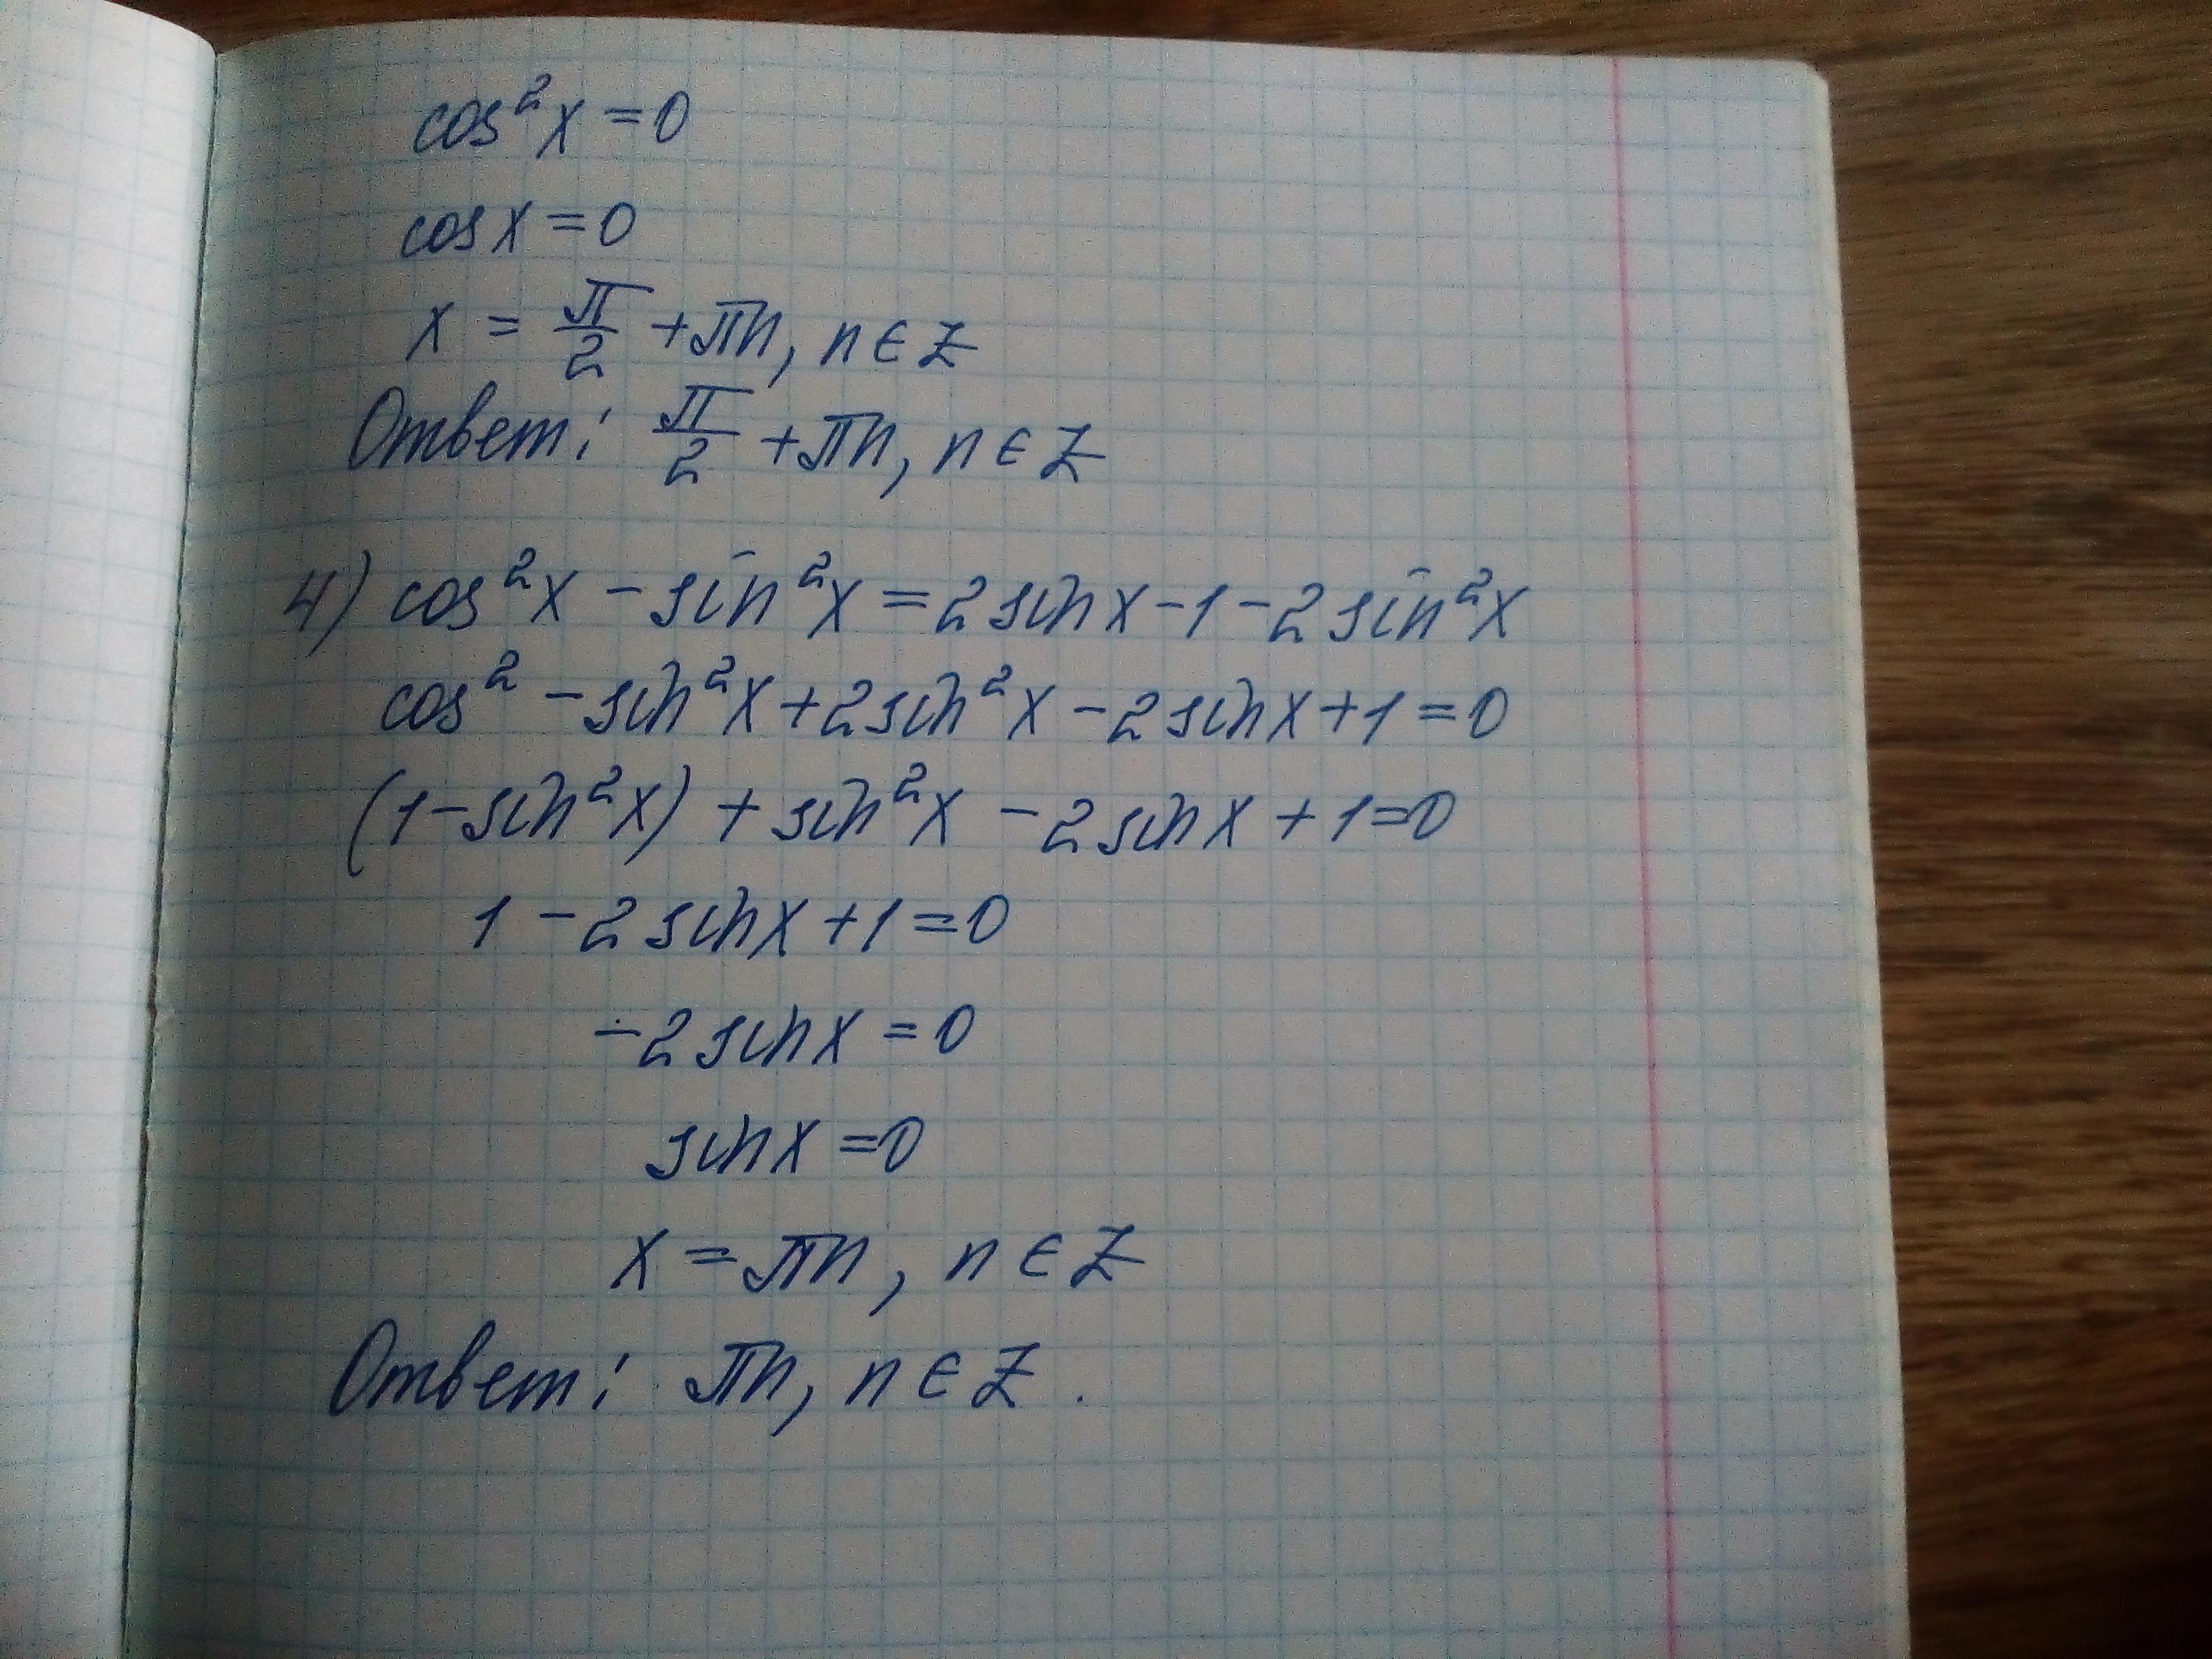 cos²x = 0
cos x = 0
x = π/2 + πn, n ∈ Z
Ответ: π/2 + πn, n ∈ Z
4) cos²x - sin²x = 2 sin x - 1 - 2 sin²x
cos² - sin²x + 2 sin²x - 2 sin x + 1 = 0
(1 - sin²x) + sin²x - 2 sin x + 1 = 0
1 - 2 sin x + 1 = 0
-2 sin x = 0
sin x = 0
x = πn, n ∈ Z
Ответ: πn, n ∈ Z.